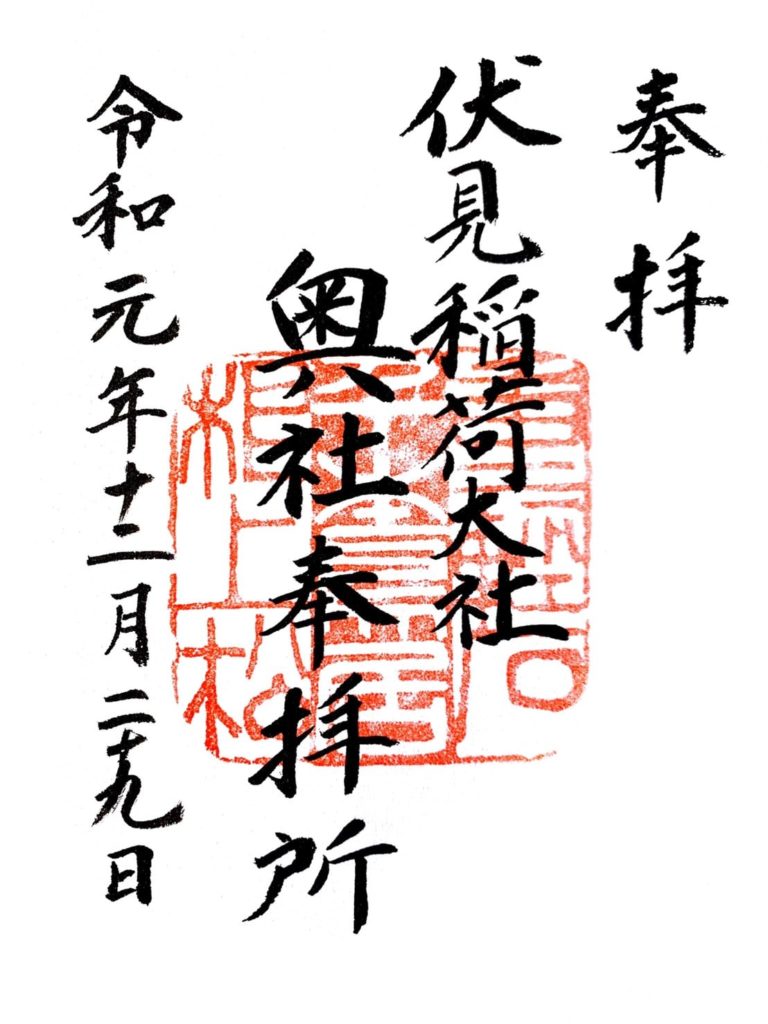 奉拝
伏見稲荷大社
奥社奉拝所
令和元年十二月二十九日